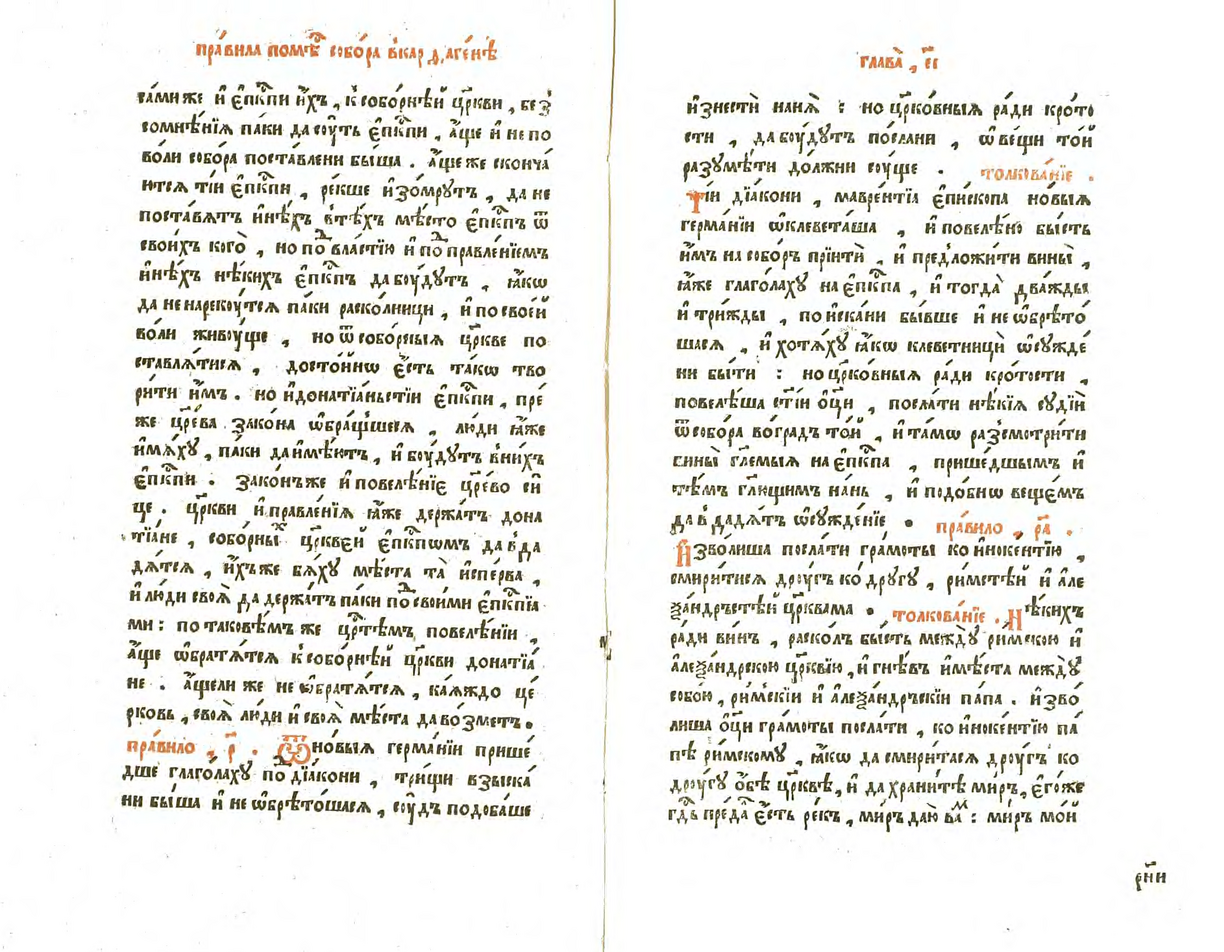 пра́вила помѣ́ собо́ра в̾кар д̾агенѣ
са́миже и҆ є҆пⷭ҇кпи и҆́хъ , к̾ собо́рнѣй цр҃кви , без̾
сомнѣ́нїѧ па́ки да сꙋ́ть є҆пⷭ҇кпи , а҆́ще и҆ не по
во́ли собо́ра поста́влени бы́ша . а҆́ще же сконча́
ютсѧ ті́и є҆пⷭ҇кпи , ре́кше и҆зо́мрꙋтъ , да не
поста́вѧтъ и҆нѣ́хъ в̾ тѣ́хъ мѣ́сто є҆пⷭ҇кпъ ѿ
свои́хъ кого̀ , но поⷣ вла́стїю и҆ поⷣ правле́нїемъ
и҆нѣ́хъ нѣ́кихъ є҆пⷭ҇кпъ да бꙋ́дꙋтъ , ꙗ҆́кѡ
да не нарекꙋ́тсѧ па́ки раско́лници , и҆ по свое́й
во́ли живꙋ́ще , но ѿ собо́рныѧ цр҃кве по
ставлѧ́тисѧ , досто́йнѡ є҆́сть та́кѡ тво
ри́ти и҆̀мъ . но и҆ дона́тїаньстїи є҆пⷭ҇кпи , пре́
же цр҃е́ва зако́на ѡ҆бра́щшеесѧ , лю́ди ꙗ҆́же
и҆мѧ́хꙋ , па́ки да и҆мѣ́ютъ , и҆ бꙋ́дꙋтъ в̾ни́хъ
є҆пⷭ҇кпи . зако́нъже и҆ повелѣ́нїе цр҃е́во си
це . цр҃кви и҆ правле́нїѧ ꙗ҆́же держа́тъ дона
тїа́не , собо́рныⷯ цр҃кве́й є҆пⷭ҇кпѡмъ да в̾да
дѧ́тсѧ , и҆́хъже бѧ́хꙋ мѣ́ста та̀ и҆спе́рва ,
и҆ лю́ди своѧ̀ да держа́тъ па́ки поⷣ свои́ми є҆пⷭ҇кпїа
ми : по таковѣ́мъ же цр҃тѣмъ повелѣ́нїи ,
а҆́ще ѡ҆братѧ́тсѧ к̾ собо́рнѣй цр҃кви дона́тїа́
не . а҆́щели же не ѡ҆братѧ́тсѧ , ка́ѧждо це́
рковь , своѧ̀ лю́ди и҆ своѧ̀ мѣ́ста да во́зметъ .
пра́вило , р҃ . Ѿ но́выѧ герма́нїи прише́
дше глаго́лахꙋ поⷣ дїа́кони , три́щи взыска́
ни бы́ша и҆ не ѡ҆брѣто́шасѧ , сꙋ́дъ подоба́ше
глава̀ , є҃і
и҆знестѝ на нѧ̀ : но цр҃ко́вныѧ ра́ди кро́то
сти , да бꙋ́дꙋтъ по́слани , ѡ҆ ве́щи то́й
разꙋмѣ́ти до́лжни сꙋ́ще . толкова́нїе .
Ті́и дїа́кони , мавре́нтїа є҆пи́скопа но́выѧ
герма́нїи ѡ҆клевета́ша , и҆ повелѣ́но бы́сть
и҆̀мъ на собо́ръ прїитѝ , и҆ предложи́ти вины̀ ,
ꙗ҆́же глаго́лахꙋ на є҆пⷭ҇кпа , и҆ тогда̀ два́жды
и҆ три́жды , по и҆ска́ни бы́вше и҆ не ѡ҆брѣто́
шасѧ , и҆ хотѧ́хꙋ ꙗ҆́кѡ клеветницы̀ ѡ҆сꙋжде́
ни бы́ти : но цр҃ко́вныѧ ра́ди кро́тости ,
повелѣ́ша ст҃і́и ѻ҆ц҃ы , посла́ти нѣ́кїѧ сꙋдїѝ
ѿ собо́ра во гра́дъ то́й , и҆ та́мѡ раз̾смотри́ти
вины̀ гл҃емыѧ на є҆пⷭ҇кпа , прише́дшымъ и҆
тѣ́мъ гл҃ющимъ на́нь , и҆ подо́бнѡ веще́мъ
да в̾дадѧ́тъ ѡ҆сꙋжде́нїе . пра́вило , р҃а .
И҆зво́лиша посла́ти гра́моты ко и҆ноке́нтїю ,
смири́тисѧ дрꙋ́гъ ко́ дрꙋгꙋ , ри́мстѣй и҆ але
ѯа́ндрьстѣй цр҃квама . толкова́нїе . Нѣ́кихъ
ра́ди ви́нъ , раско́лъ бы́сть междꙋ̀ ри́мскою и҆
а҆леѯа́ндрскою цр҃квїю , и҆ гнѣ́въ и҆мѣ́ста междꙋ̀
собо́ю , ри́мскїи и҆ а҆леѯа́ндръскїи па́па . и҆зво́
лиша ѻ҆ц҃ы гра́моты посла́ти , ко и҆ноке́нтїю па́
пѣ ри́мскомꙋ , ꙗ҆́кѡ да смири́тасѧ дрꙋ́гъ ко
дрꙋ́гꙋ ѻ҆́бѣ цр҃квѣ , и҆ да храни́тѣ ми́ръ , є҆го́же
гд҇ь преда̀ є҆́сть ре́къ , ми́ръ даю̀ ваⷨ : ми́ръ мо́й
рн҃и